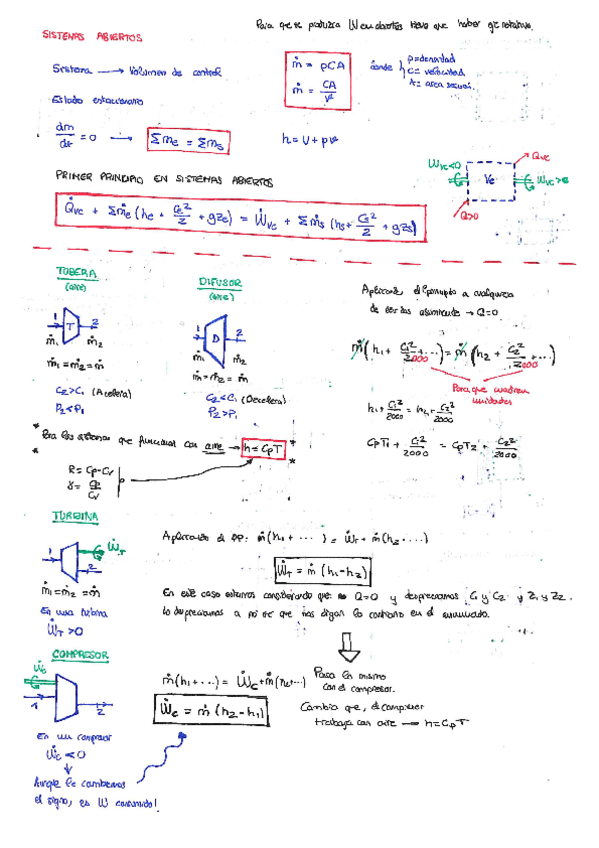 Para que se produzca W en dantes tiene que haber gr rotativo.
SISTEMAS ABIERTOS
Sistema → Volumen de control
ṁ = ρCA
ṁ = CA/v
donde ρ=densidad
C= velocidad
A= area seccion.
Estado estacionario
dm/dt = 0 → Σṁe = Σṁs
h = U + pv
PRIMER PRINCIPIO EN SISTEMAS ABIERTOS
Q̇vc + Σṁe (he + Ce²/2 + gze) = Ẇvc + Σṁs (hs + Cs²/2 + gzs)
Wvc<0
Vc
Qvc
Q>0
TOBERA
(aire)
1 T 2
ṁ1 ṁ2
ṁ1 = ṁ2 = ṁ
C2>C1 (Acelera)
P2<P1
DIFUSOR
(aire)
1 D 2
ṁ1 ṁ2
ṁ1 = ṁ2 = ṁ
C2<C1 (Decelera)
P2>P1
Aplicando el Principio a cualquiera
de los dos → Q=0
ṁ(h1 + C1²/2000 + ...) = ṁ(h2 + C2²/2000 + ...)
Para que cuadren
unidades
h1 + C1²/2000 = h2 + C2²/2000
CpT1 + C1²/2000 = CpT2 + C2²/2000
* Para los sistemas que funcionan con aire → h = CpT *
R = Cp-Cv
γ = Cp/Cv
TURBINA
1 2 ẆT
ṁ1 = ṁ2 = ṁ
En una turbina
ẆT > 0
Aplicando el PP: ṁ(h1 + ...) = ẆT + ṁ(h2 ...)
ẆT = ṁ (h1 - h2)
En este caso estamos considerando que Q=0 y despreciamos C1 y C2 y Z1 y Z2.
Lo despreciamos a no ser que nos digan lo contrario en el enunciado.
COMPRESOR
Ẇc
1 2
En un compresor
Ẇc < 0
Aunque le cambiemos
el signo, es W consumido!
ṁ(h1 + ...) = Ẇc + ṁ(h2 + ...)
Ẇc = ṁ (h2 - h1)
Pasa lo mismo
con el compresor.
Cambia que, el compresor
trabaja con aire → h = CpT